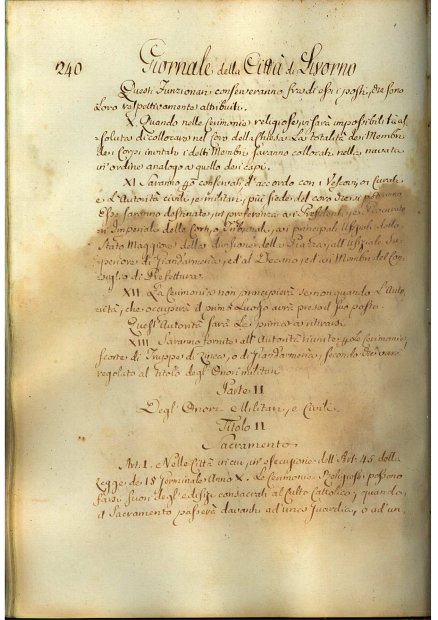 240 Giornale della Città di Livorno
Questi Funzionari conserveranno fra di essi i posti, che sono
Loro respettivamente attribuiti.
X. Quando nelle Cerimonie religiose vi sarà impossibilità as-
soluta di collocare nel Coro della Chiesa La totalità dei Membri
dei Corpi invitati i detti Membri saranno collocati nella navata
in ordine analogo a quello dei capi.
XI. Saranno conservati d'accordo con i Vescovi, o i Curati
e L'Autorità civili, e militari, più sedie del coro
Esse saranno destinate in preferenza ai Presidenti, e
Imperiale delle Corti, o Tribunali, ai principali Uffiziali dello
Stato Maggiore della divisione della Piazza, all'Uffiziale Su-
periore di Giandarmeria, ed al Decano, ed ai Membri del Con-
siglio di Prefettura.
XII. La Cerimonia non principierà se non quando L'Auto-
rità, che occuperà il primo Luogo avrà preso il suo posto.
Quest'Autorità sarà La prima a ritirarsi.
XIII. Saranno fornite all'Autorità riunite Le Cerimonie
scorte di Truppe di Linea, o di Giandarmeria, secondo che sarà
regolato al titolo degl'Onori militari
Parte II
Degl'Onori Militari, e Civili.
Titolo II
Sacramento.
Art. 1. Nelle Città in cui, in esecuzione dell'Art. 45 della
Legge de 18 Germinale Anno X. Le Cerimonie Religiose possono
farsi fuori degl'edifizi consacrati al Culto Cattolico, quando,
il Sacramento passerà davanti ad una Guardia, o ad un